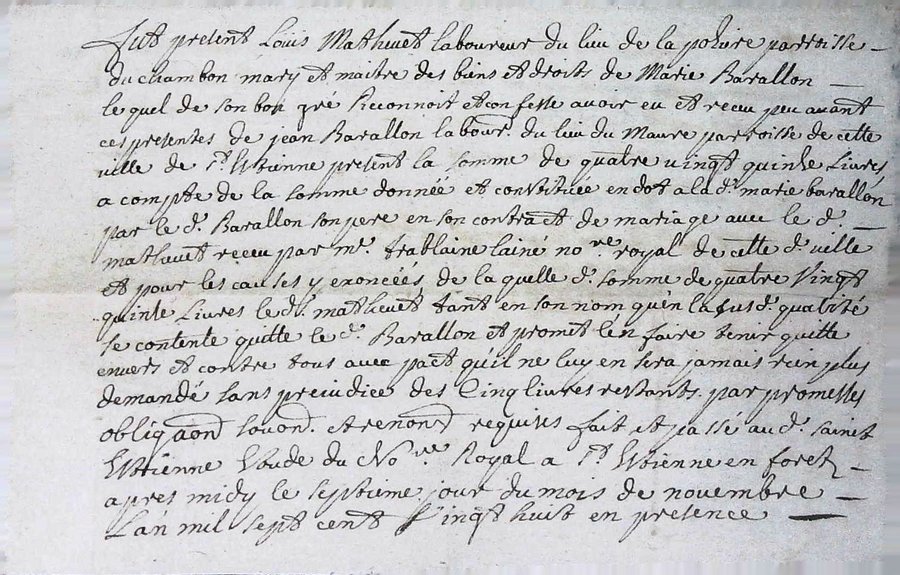 fut présent Louis Mathevet laboureur du lieu de la poherie parroisse
du chambon mary et maitre des biens et droits de Marie Barallon
le quel de son bon gré Reconnoit et confesse avoir eu et receu peu avant
ces presentes de jean Barallon labour.r du lieu du Maure parroisse de cette
ville de S.t Etienne present la somme de quatre vingt quinze Livres
a compte de la somme donnée et constituée en dot a la d. marie barallon
par le d. Barallon son pere en son contract de mariage avec le d.
mathevet receu par m.e trablaine lainé no.re royal de cette d. ville
et pour les causes y enoncées, de la quelle d. somme de quatre Vingt
quinze Livres le d. mathevet tant en son nom qu'en la susd. qualité
se contente quitte le d. Barallon et promet l'en faire tenir quitte
envers et contre tous avec pact qu'il ne luy en sera jamais rien plus
demandé sans prejudice des Cinq livres restants. par promesses
obligaõns soumõns et renonõns requises fait et passé au d. saint
Etienne Etude du No.re Royal a S.t Etienne en forez
apres midy le septieme jour du mois de novembre
L'an mil sept cent Vingt huit en presence